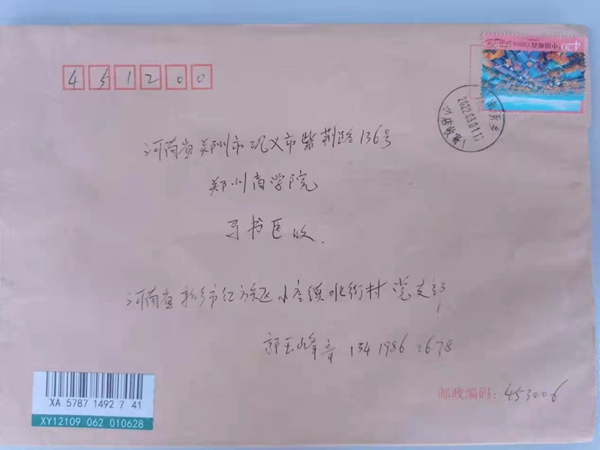 451200
2022.03.01.1
河南省郑州市巩义市紫荆路136号
郑州商学院
书臣收
河南省新乡市红旗区小店镇水衔村党支部
郭玉峰寄 134 1986 2678
XA 5787 1492 7 41
XY12109 062 010628
邮政编码：453006